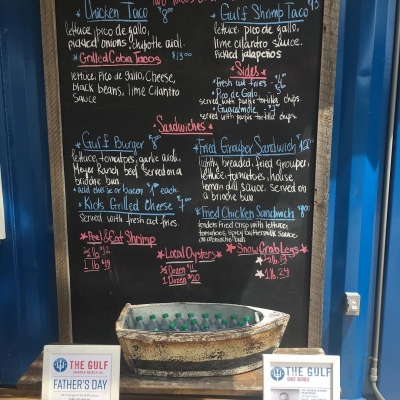 * Chicken Taco 8⁰⁰
lettuce, pico de gallo,
pickled onions, chipotle aioli.
* Grilled Cobia Tacos $13⁰⁰
lettuce, Pico de Gallo, Cheese,
black beans, lime Cilantro
Sauce
* Gulf Shrimp Taco
lettuce, pico de gallo,
lime cilantro sauce.
Pickled jalapeños
* Sides *
* Fresh cut fries
* Pico de Gallo
served with purple tortilla chips.
* Guacamole
served with purple tortilla chips
Sandwiches *
* Gulf Burger
lettuce, tomatoes, garlic aioli,
Meyer Ranch beef served on a
brioche bun
* Add cheese or bacon each
* Kids Grilled Cheese
Served with fresh cut fries.
* Fried Grouper Sandwich
lightly breaded, fried Grouper,
lettuce, tomatoes, house
lemon dill sauce. served on
a brioche bun
* Fried Chicken Sandwich
lettuce
tomatoes, spicy buttermilk sauce
on a brioche bun
* Peel & Eat Shrimp
1/2 lb $12
1 lb
* Local Oysters *
1/2 Dozen $11
1 Dozen $20
* Snow Crab Legs *
1 lb. 24
THE GULF
FATHER'S DAY
THE GULF